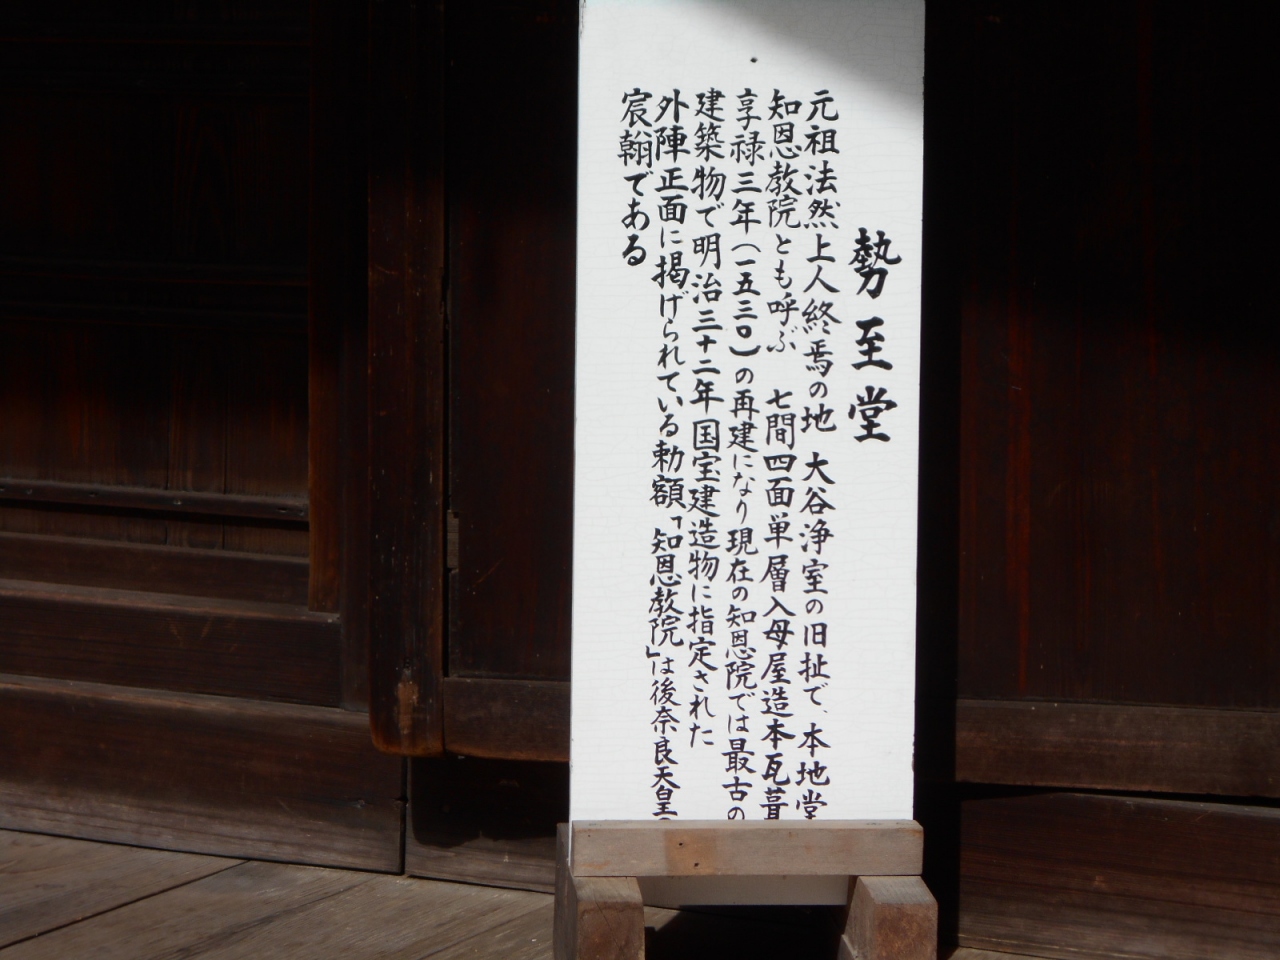 勢至堂
元祖法然上人終焉の地 大谷浄室の旧址で、本地堂
知恩教院とも呼ぶ 七間四面単層入母屋造本瓦葺
享禄三年(一五三〇)の再建になり現在の知恩院では最古の
建築物で明治三十二年国宝建造物に指定された
外陣正面に掲げられている勅額「知恩教院」は後奈良天皇
宸翰である